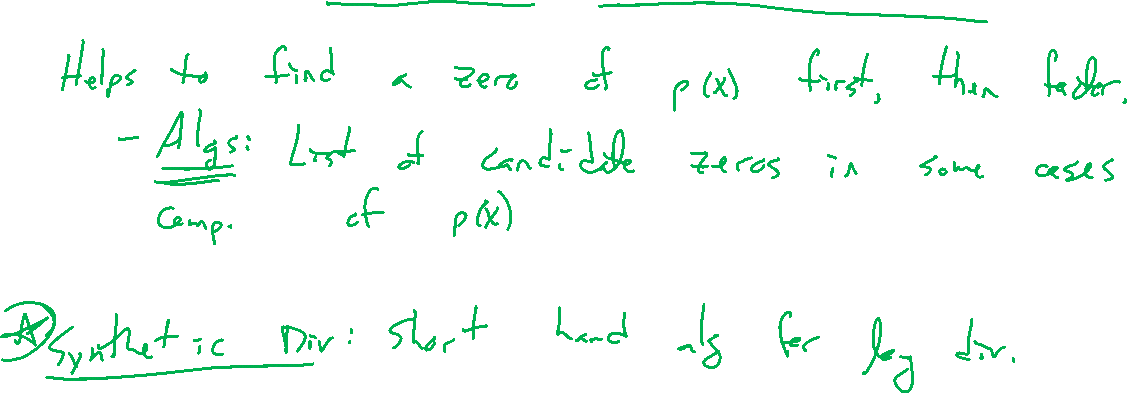 Helps to find a zero of p(x) first, then factor.
- Algs: List of candidate zeros in some cases
comp. of p(x)
Synthetic Div: short hand alg for long div.